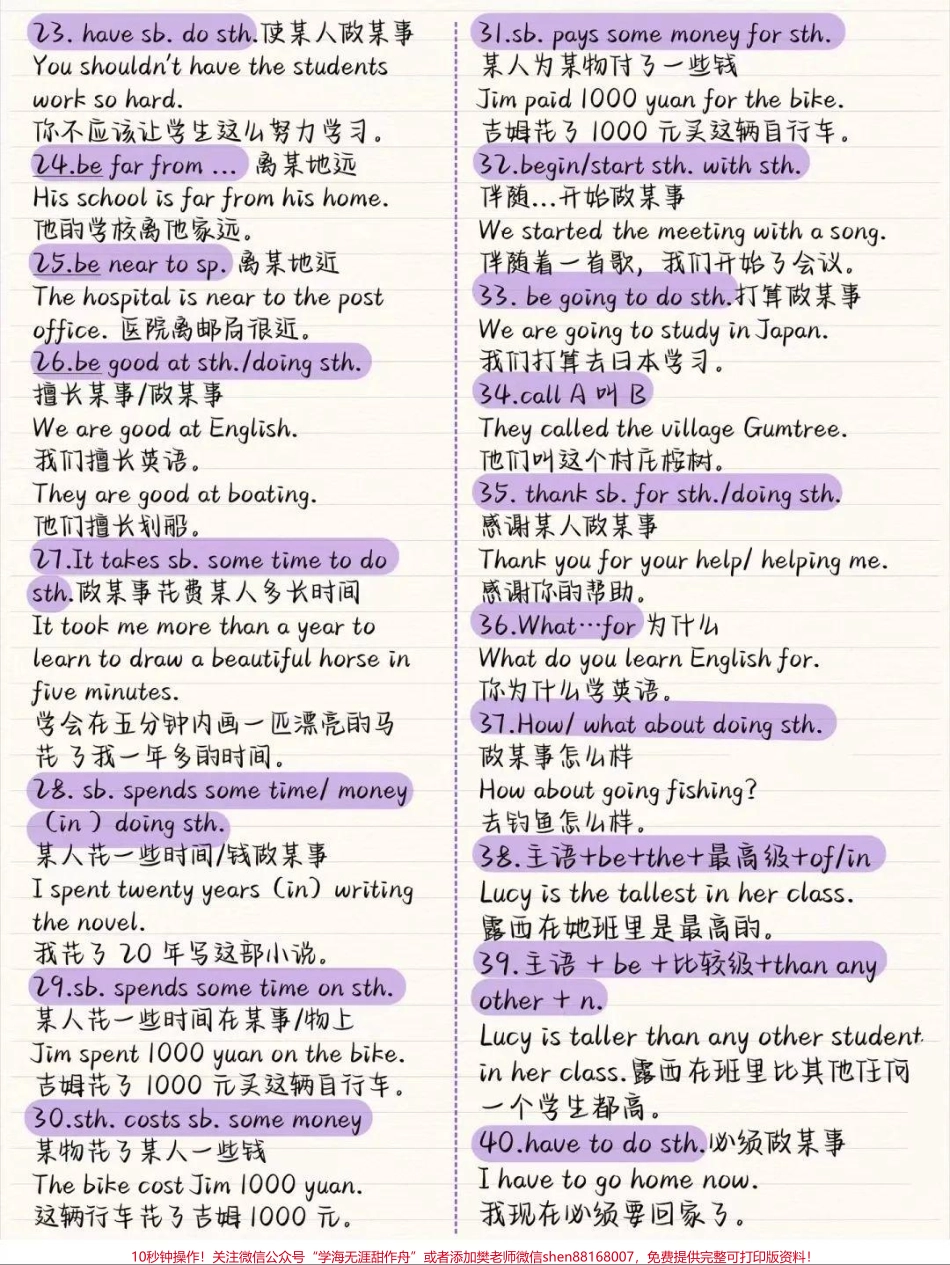 23. have sb. do sth.使某人做某事
You shouldn't have the students
work so hard.
你不应该让学生这么努力学习。
24.be far from ... 离某地远
His school is far from his home.
他的学校离他家远。
25.be near to sp. 离某地近
The hospital is near to the post
office. 医院离邮局很近。
26.be good at sth./doing sth.
擅长某事/做某事
We are good at English.
我们擅长英语。
They are good at boating.
他们擅长划船。
27.It takes sb. some time to do
sth.做某事花费某人多长时间
It took me more than a year to
learn to draw a beautiful horse in
five minutes.
学会在五分钟内画一匹漂亮的马
花了我一年多的时间。
28. sb. spends some time/ money
（in ）doing sth.
某人花一些时间/钱做某事
I spent twenty years（in）writing
the novel.
我花了 20 年写这部小说。
29.sb. spends some time on sth.
某人花一些时间在某事/物上
Jim spent 1000 yuan on the bike.
吉姆花了 1000 元买这辆自行车。
30.sth. costs sb. some money
某物花了某人一些钱
The bike cost Jim 1000 yuan.
这辆行车花了吉姆 1000 元。
31.sb. pays some money for sth.
某人为某物付了一些钱
Jim paid 1000 yuan for the bike.
吉姆花了 1000 元买这辆自行车。
32.begin/start sth. with sth.
伴随...开始做某事
We started the meeting with a song.
伴随着一首歌，我们开始了会议。
33. be going to do sth.打算做某事
We are going to study in Japan.
我们打算去日本学习。
34.call A 叫 B
They called the village Gumtree.
他们叫这个村庄桉树。
35. thank sb. for sth./doing sth.
感谢某人做某事
Thank you for your help/ helping me.
感谢你的帮助。
36.What…for 为什么
What do you learn English for.
你为什么学英语。
37.How/ what about doing sth.
做某事怎么样
How about going fishing?
去钓鱼怎么样。
38.主语+be+the+最高级+of/in
Lucy is the tallest in her class.
露西在她班里是最高的。
39.主语 + be +比较级+than any
other + n.
Lucy is taller than any other student
in her class.露西在班里比其他任何
一个学生都高。
40.have to do sth.必须做某事
I have to go home now.
我现在必须要回家了。
10秒钟操作！关注微信公众号“学海无涯甜作舟”或者添加樊老师微信shen88168007，免费提供完整可打印版资料！